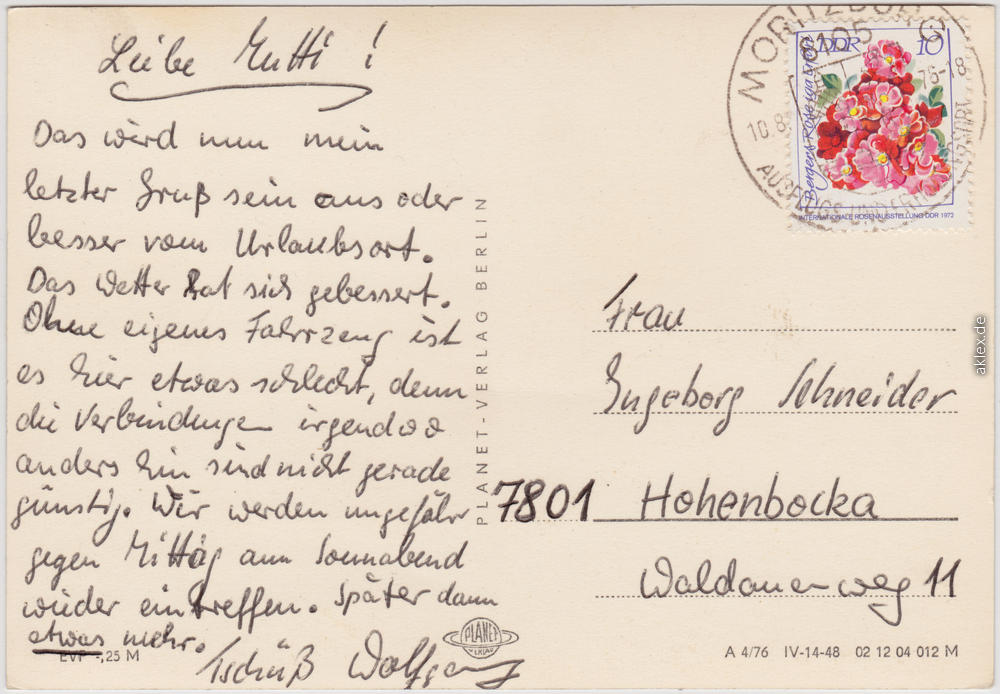 Liebe Mutti!
Das wird nun mein
letzter Gruß sein aus oder
besser vom Urlaubsort.
Das Wetter hat sich gebessert.
Ohne eigenes Fahrzeug ist
es hier etwas schlecht, denn
die Verbindungen irgendwo
anders hin sind nicht gerade
günstig. Wir werden ungefähr
gegen Mittag am Sonnabend
wieder eintreffen. Später dann
etwas mehr.
Tschüß Wolfgang
EVP -,25 M
PLANET-VERLAG BERLIN
PLANET
VERLAG
MORITZBURG
8105
10.8.76-8
AUSFLUGS- UND
DDR 10
Bergers Rose
INTERNATIONALE ROSENAUSSTELLUNG DDR 1972
Frau
Ingeborg Schneider
7801 Hohenbocka
Waldauerweg 11
A 4/76 IV-14-48 02 12 04 012 M
aklex.de